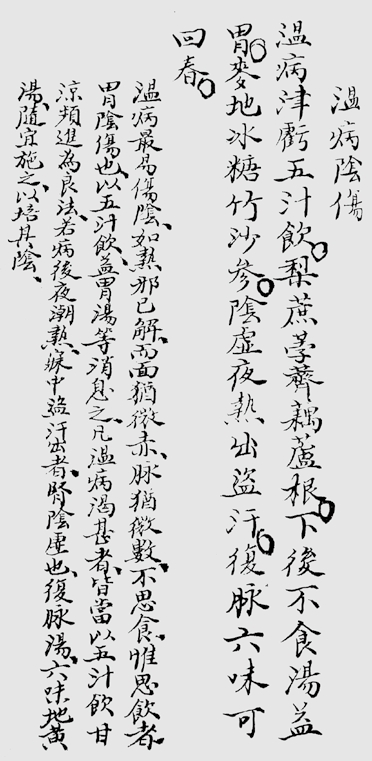 溫病陰傷
溫病津虧五汁飲。梨蔗荸薺藕蘆根。下後不食湯益
胃。麥地冰糖竹沙參。陰虛夜熱出盜汗。復脉六味可
回春。
溫病最易傷陰、如熱邪已解、而面猶微赤、脉猶微數、不思食、惟思飲者、
胃陰傷也、以五汁飲、益胃湯等消息之、凡溫病渴甚者、皆當以五汁飲甘
涼頻進為良法、若病後夜潮熱、寐中盜汗出者、腎陰虛也、復脉湯、六味地黃
湯、隨宜施之、以培其陰、